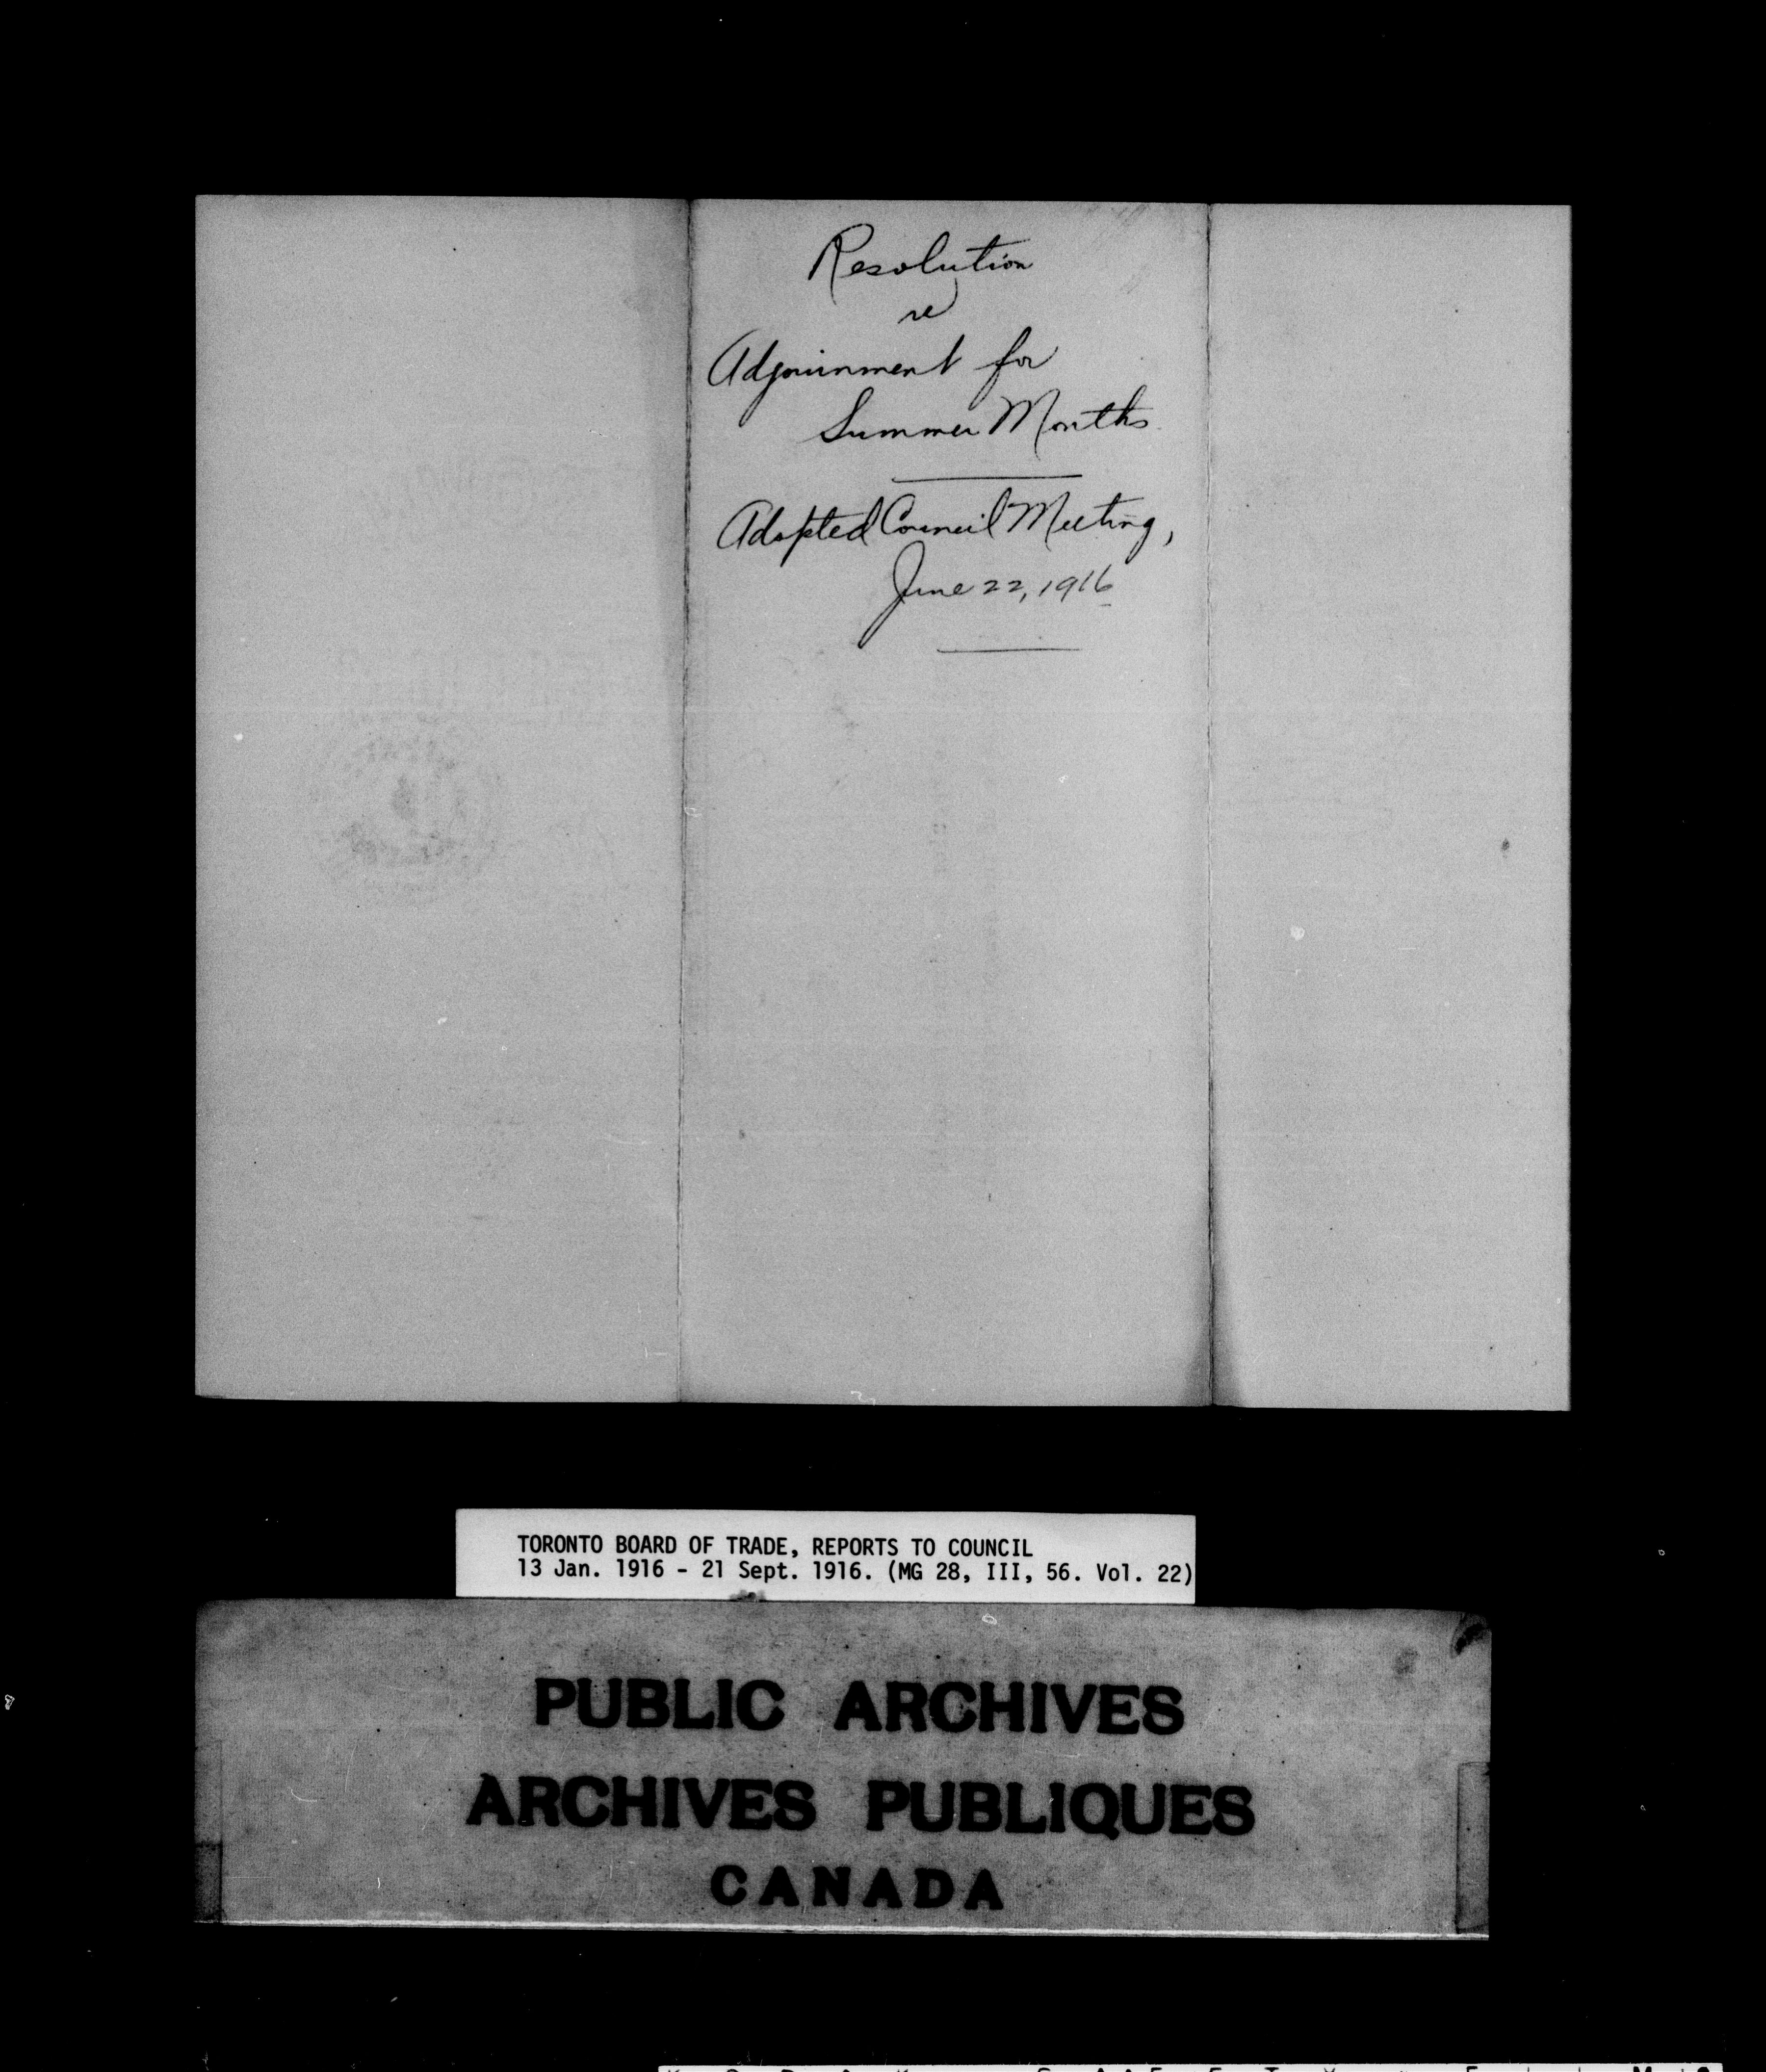 Resolution
re
Adjournment for
Summer Months
Adopted Council Meeting,
June 22, 1916
TORONTO BOARD OF TRADE, REPORTS TO COUNCIL
13 Jan. 1916 - 21 Sept. 1916. (MG 28, III, 56. Vol. 22)
PUBLIC ARCHIVES
ARCHIVES PUBLIQUES
CANADA